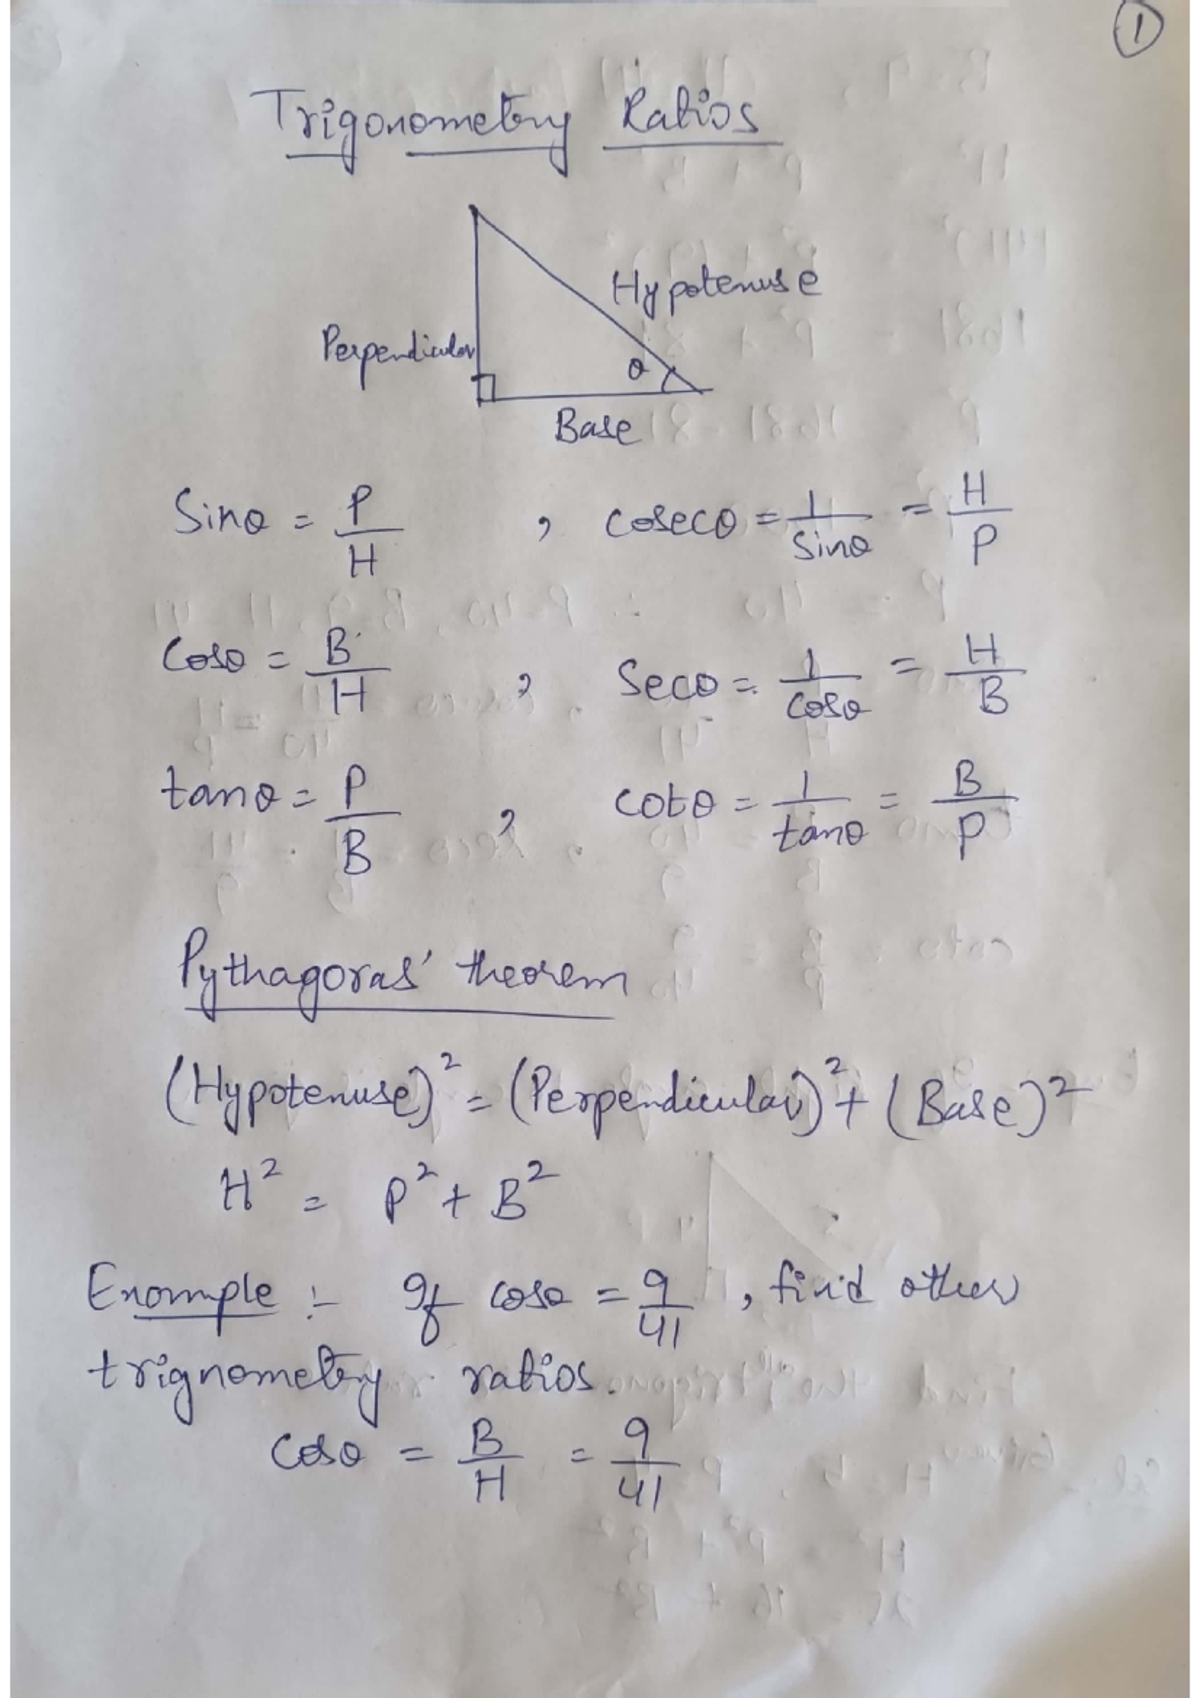 1
Trigonometry Ratios
Hypotenuse
Perpendicular
θ
Base
Sinθ = P/H , cosecθ = 1/Sinθ = H/P
Cosθ = B/H , Secθ = 1/Cosθ = H/B
tanθ = P/B , cotθ = 1/tanθ = B/P
Pythagoras' theorem
(Hypotenuse)² = (Perpendicular)² + (Base)²
H² = P² + B²
Example :- If cosθ = 9/41 , find other
trignometry ratios.
Cosθ = B/H = 9/41